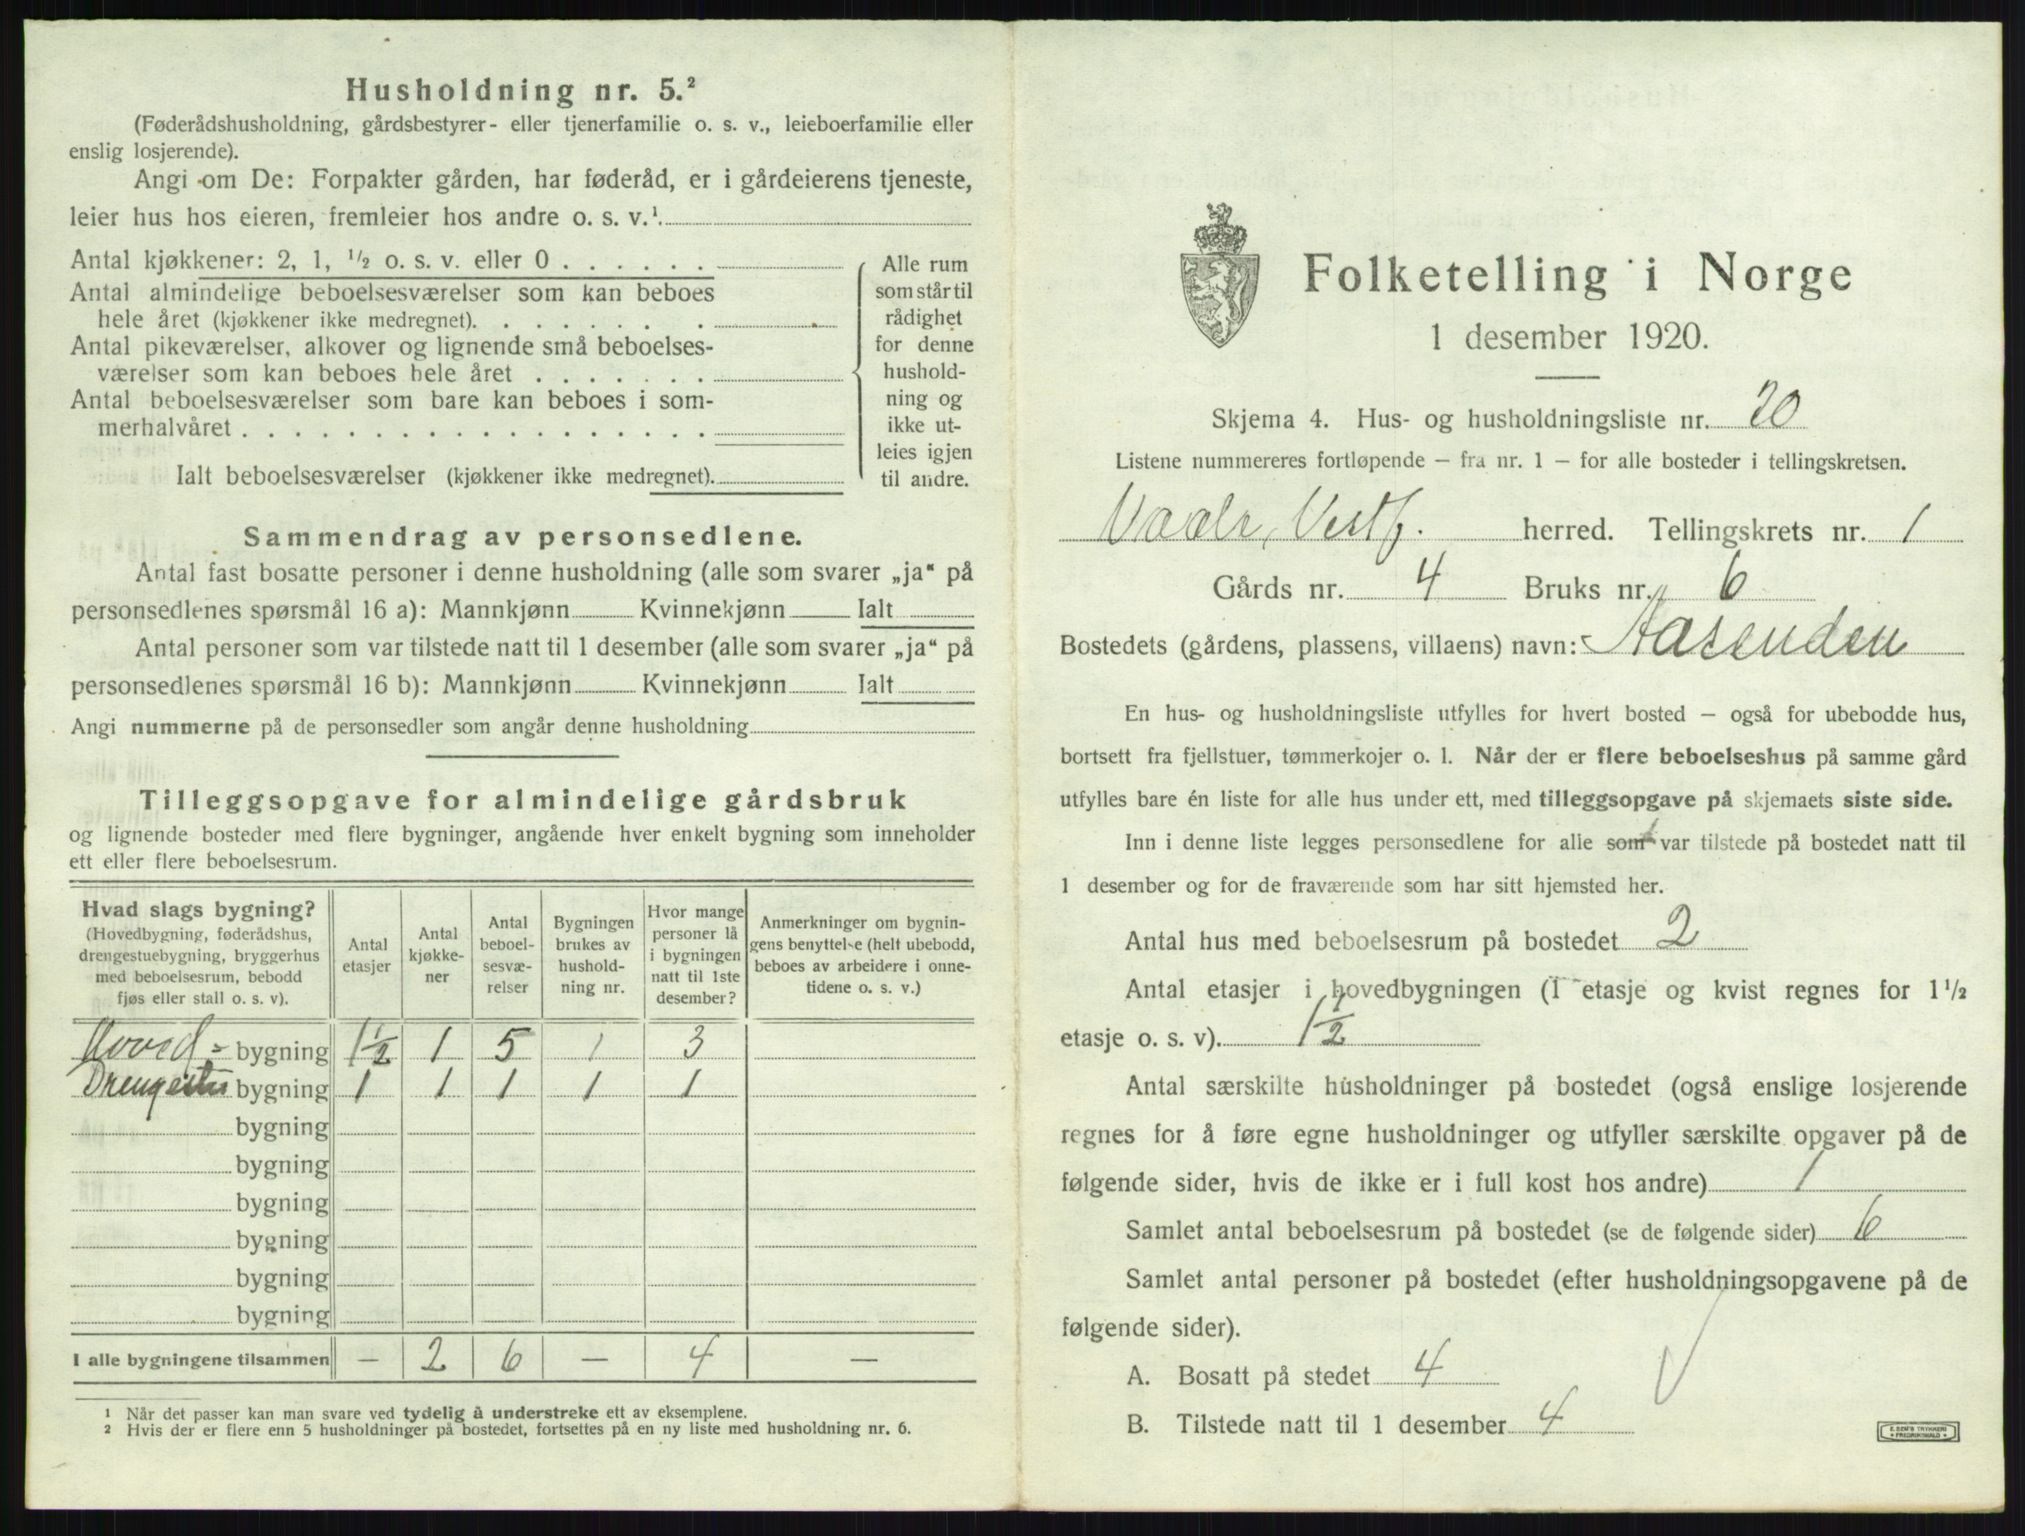 Husholdning nr. 5.²
(Føderådshusholdning, gårdsbestyrer- eller tjenerfamilie o. s. v., leieboerfamilie eller
enslig losjerende).
Angi om De: Forpakter gården, har føderåd, er i gårdeierens tjeneste,
leier hus hos eieren, fremleier hos andre o. s. v.¹.
Antal kjøkkener: 2, 1, ½ o. s. v. eller 0
Antal almindelige beboelsesværelser som kan beboes
hele året (kjøkkener ikke medregnet).
Antal pikeværelser, alkover og lignende små beboelses-
værelser som kan beboes hele året
Antal beboelsesværelser som bare kan beboes i som-
merhalvåret
Ialt beboelsesværelser (kjøkkener ikke medregnet).
Alle rum
som står til
rådighet
for denne
hushold-
ning og
ikke ut-
leies igjen
til andre.
Sammendrag av personsedlene.
Antal fast bosatte personer i denne husholdning (alle som svarer „ja“ på
personsedlenes spørsmål 16 a): Mannkjønn Kvinnekjønn Ialt
Antal personer som var tilstede natt til 1 desember (alle som svarer „ja“ på
personsedlenes spørsmål 16 b): Mannkjønn Kvinnekjønn Ialt
Angi nummerne på de personsedler som angår denne husholdning
Tilleggsopgave for almindelige gårdsbruk
og lignende bosteder med flere bygninger, angående hver enkelt bygning som inneholder
ett eller flere beboelsesrum.
Hvad slags bygning?
(Hovedbygning, føderådshus,
drengestuebygning, bryggerhus
med beboelsesrum, bebodd
fjøs eller stall o. s. v).
Antal
etasjer
Antal
kjøkke-
ner
Antal
beboel-
sesvæ-
relser
Bygningen
brukes av
hushold-
ning nr.
Hvor mange
personer lå
i bygningen
natt til 1ste
desember?
Anmerkninger om bygnin-
gens benyttelse (helt ubebodd,
beboes av arbeidere i onne-
tidene o. s. v.)
Hoved- bygning 1½ 1 5 1 3
Drengestu bygning 1 1 1 1 1
bygning
bygning
bygning
bygning
bygning
bygning
I alle bygningene tilsammen — 2 6 — 4 —
¹ Når det passer kan man svare ved tydelig å understreke ett av eksemplene.
² Hvis der er flere enn 5 husholdninger på bostedet, fortsettes på en ny liste med husholdning nr. 6.
Folketelling i Norge
1 desember 1920.
Skjema 4. Hus- og husholdningsliste nr. 20
Listene nummereres fortløpende — fra nr. 1 — for alle bosteder i tellingskretsen.
Vaale, Vestf. herred. Tellingskrets nr. 1
Gårds nr. 4 Bruks nr. 6
Bostedets (gårdens, plassens, villaens) navn: Aasenden
En hus- og husholdningsliste utfylles for hvert bosted — også for ubebodde hus,
bortsett fra fjellstuer, tømmerkojer o. l. Når der er flere beboelseshus på samme gård
utfylles bare én liste for alle hus under ett, med tilleggsopgave på skjemaets siste side.
Inn i denne liste legges personsedlene for alle som var tilstede på bostedet natt til
1 desember og for de fraværende som har sitt hjemsted her.
Antal hus med beboelsesrum på bostedet 2
Antal etasjer i hovedbygningen (1 etasje og kvist regnes for 1½
etasje o. s. v). 1½
Antal særskilte husholdninger på bostedet (også enslige losjerende
regnes for å føre egne husholdninger og utfyller særskilte opgaver på de
følgende sider, hvis de ikke er i full kost hos andre) 1
Samlet antal beboelsesrum på bostedet (se de følgende sider) 6
Samlet antal personer på bostedet (efter husholdningsopgavene på de
følgende sider).
A. Bosatt på stedet 4
B. Tilstede natt til 1 desember 4
E. SEM'S TRYKKERI
• FREDRIKSHALD •